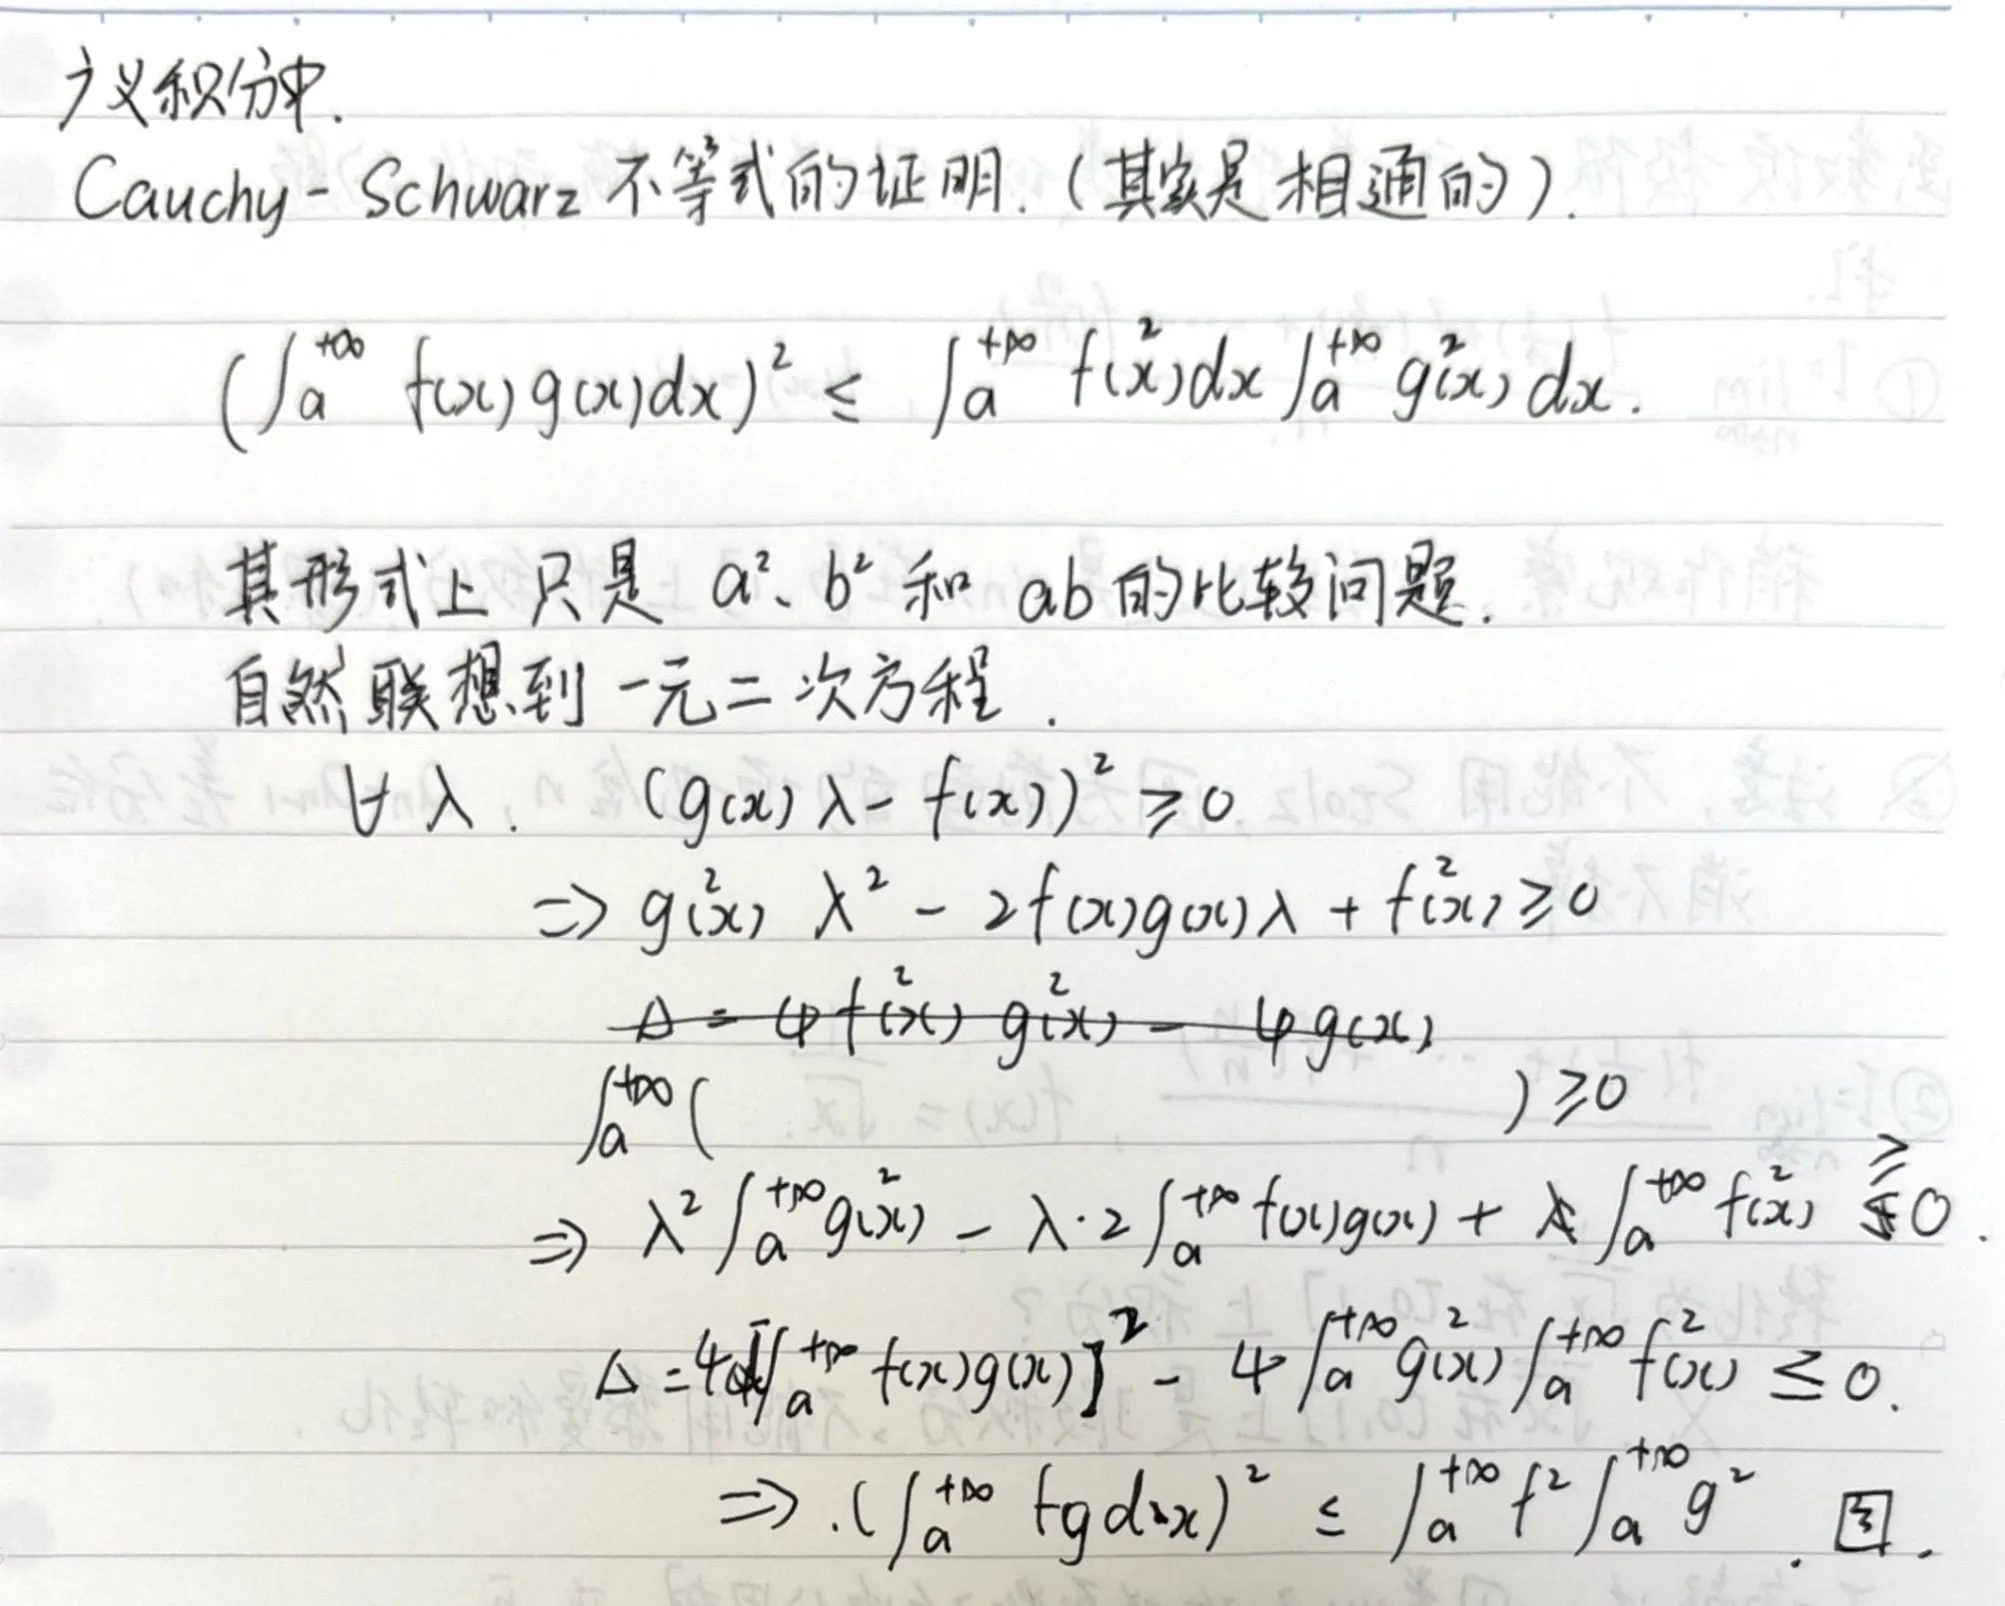 广义积分中.
Cauchy-Schwarz 不等式的证明.(其实是相通的).
(∫_a^{+∞} f(x)g(x)dx)² ≤ ∫_a^{+∞} f²(x)dx ∫_a^{+∞} g²(x)dx.
其形式上只是 a²、b² 和 ab 的比较问题.
自然联想到一元二次方程.
∀λ. (g(x)λ - f(x))² ≥ 0
⇒ g²(x) λ² - 2f(x)g(x)λ + f²(x) ≥ 0
Δ = 4f²(x) g²(x) - 4g(x)
∫_a^{+∞} ( ) ≥ 0
⇒ λ² ∫_a^{+∞} g²(x) - λ·2 ∫_a^{+∞} f(x)g(x) + ∫_a^{+∞} f²(x) ≥ 0.
Δ = 4[∫_a^{+∞} f(x)g(x)]² - 4∫_a^{+∞} g²(x) ∫_a^{+∞} f²(x) ≤ 0.
⇒ .(∫_a^{+∞} fg dx)² ≤ ∫_a^{+∞} f² ∫_a^{+∞} g².